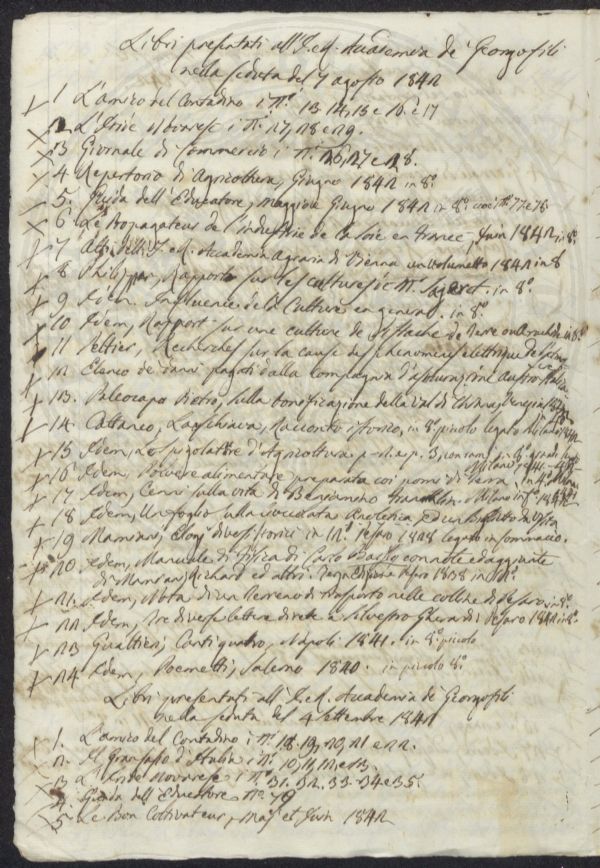 Libri presentati all'I. e R. Accademia de' Georgofili
nella seduta del 7 agosto 1842
1 L'amico del Contadino i N.i 13 14, 15 e 16. e 17
2 L'Iride Novarese i N.i 27, 28 e 29.
3 Giornale di Commercio i N.i 26, 27 e 28.
4 Repertorio di Agricoltura, Giugno 1842 in 8.o
5. Guida dell'Educatore, Maggio e Giugno 1842 in 8.o cioè N.i 77 e 78
6 Le Propagateur de l'industrie de la Soie en France, Juin 1842 in 8.o
7 Atti dell'I. e R. Accademia Agraria di Vienna un volumetto 1842 in 8
8 Philippar, Rapporto sur les cultures de M. Sageret. in 8.o
9 Idem. Influence de la Culture en general. in 8.o
10 Idem, Rapport sur une culture de Pistache de Terre ou Arachide in 8.o
11 Peltier, Recherches sur la cause des phenomenes elettriques de
12 Elenco de' danni pagati dalla Compagnia d'assicurazione Austro Italica
13. Paleocapa Pietro, sulla bonificazione della Val di Chiana, Venezia
14. Cattaneo, La schiava, Racconto istorico, in 8.o piccolo legato Milano 1841
15 Idem, Lo spigolatore d'Agricoltura in 8.o grande
16 Idem, Polvere alimentare preparata coi pomi di Terra. Milano 1841
17 Idem, Cenni sulla vita di Beniamino Franklin. Milano
18 Idem, Un foglio sulla
19 Mamiani, Elogi diversi storici in Pesaro 1828 legato in sommacco.
20. Idem, Manuale di Fisica di con note ed aggiunte
di Mamiani, Richard ed altri. Pesaro 1838 in
21. Idem, Nota di un Terreno di trasporto nelle colline di Pesaro in 8.o
22. Idem, Tre diverse lettere dirette a Silvestro Gherardi Pesaro 1842 in 8.o
23 Gualtieri, Canti quatro, Napoli 1841. in 8.o piccolo
24. Idem, Poemetti, Salerno 1840. in piccolo 8.o
Libri presentati all'I. e R. Accademia de' Georgofili
nella seduta del 4 Settembre 1842
1. L'amico del Contadino i N.i 18. 19, 20, 21 e 22.
2. Il Gransasso d'Italia i N.i 10, 11, 12 e 13.
3 L'Iride Novarese i N.i 31. 32, 33. 34 e 35.
4. Guida dell'Educatore N.o 79
5. Le Bon Cultivateur, Maj et Juin 1842